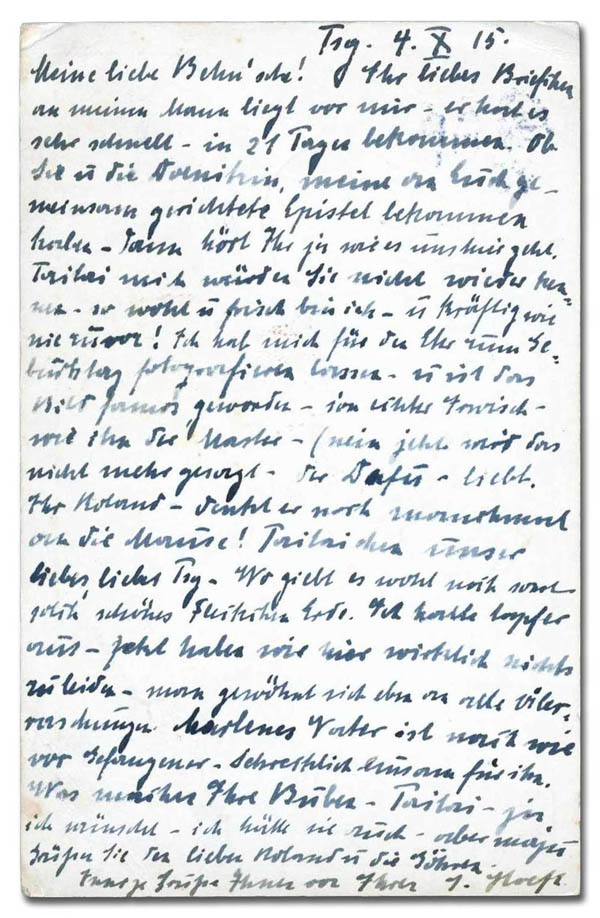 Tsg. 4. X 15.
Meine liebe Behn'sche! Ihr liebes Briefchen
an meinen Mann liegt vor mir - er hat es
sehr schnell - in 21 Tagen bekommen. Ob
Sie u die meine an Euch ge-
meinsam gerichtete Epistel bekommen
haben - dann hört Ihr ja wie es uns hier geht.
Taitai mich würden Sie nicht wieder ken-
nen - so wohl u frisch bin ich - u kräftig wie
nie zuvor! Ich hab mich für den Ehe zum Ge-
burtstag fotografieren lassen - u ist das
Bild famos geworden - son echter
wie ihn der - (nein jetzt wird das
nicht mehr gesagt - der - liebt.
Ihr Roland - denkt er noch manchmal
an die Mause! Taitaichen unser
liebes, liebes Tsg - Wo giebt es wohl noch sonst
solch schönes Fleckchen Erde. Ich halte tapfer
aus - jetzt haben wir hier wirklich nichts
zu leiden - man gewöhnt sich eben an alle Über-
raschungen. Marlenes Vater ist nach wie
vor Gefangener - Schrecklich einsam für ihn.
Was machen Ihre Buben - Taitai - ja
ich wünscht - ich hätte sie auch - aber
Grüßen Sie den lieben Roland u die Gören.
Innige Grüße Ihnen von Ihrer